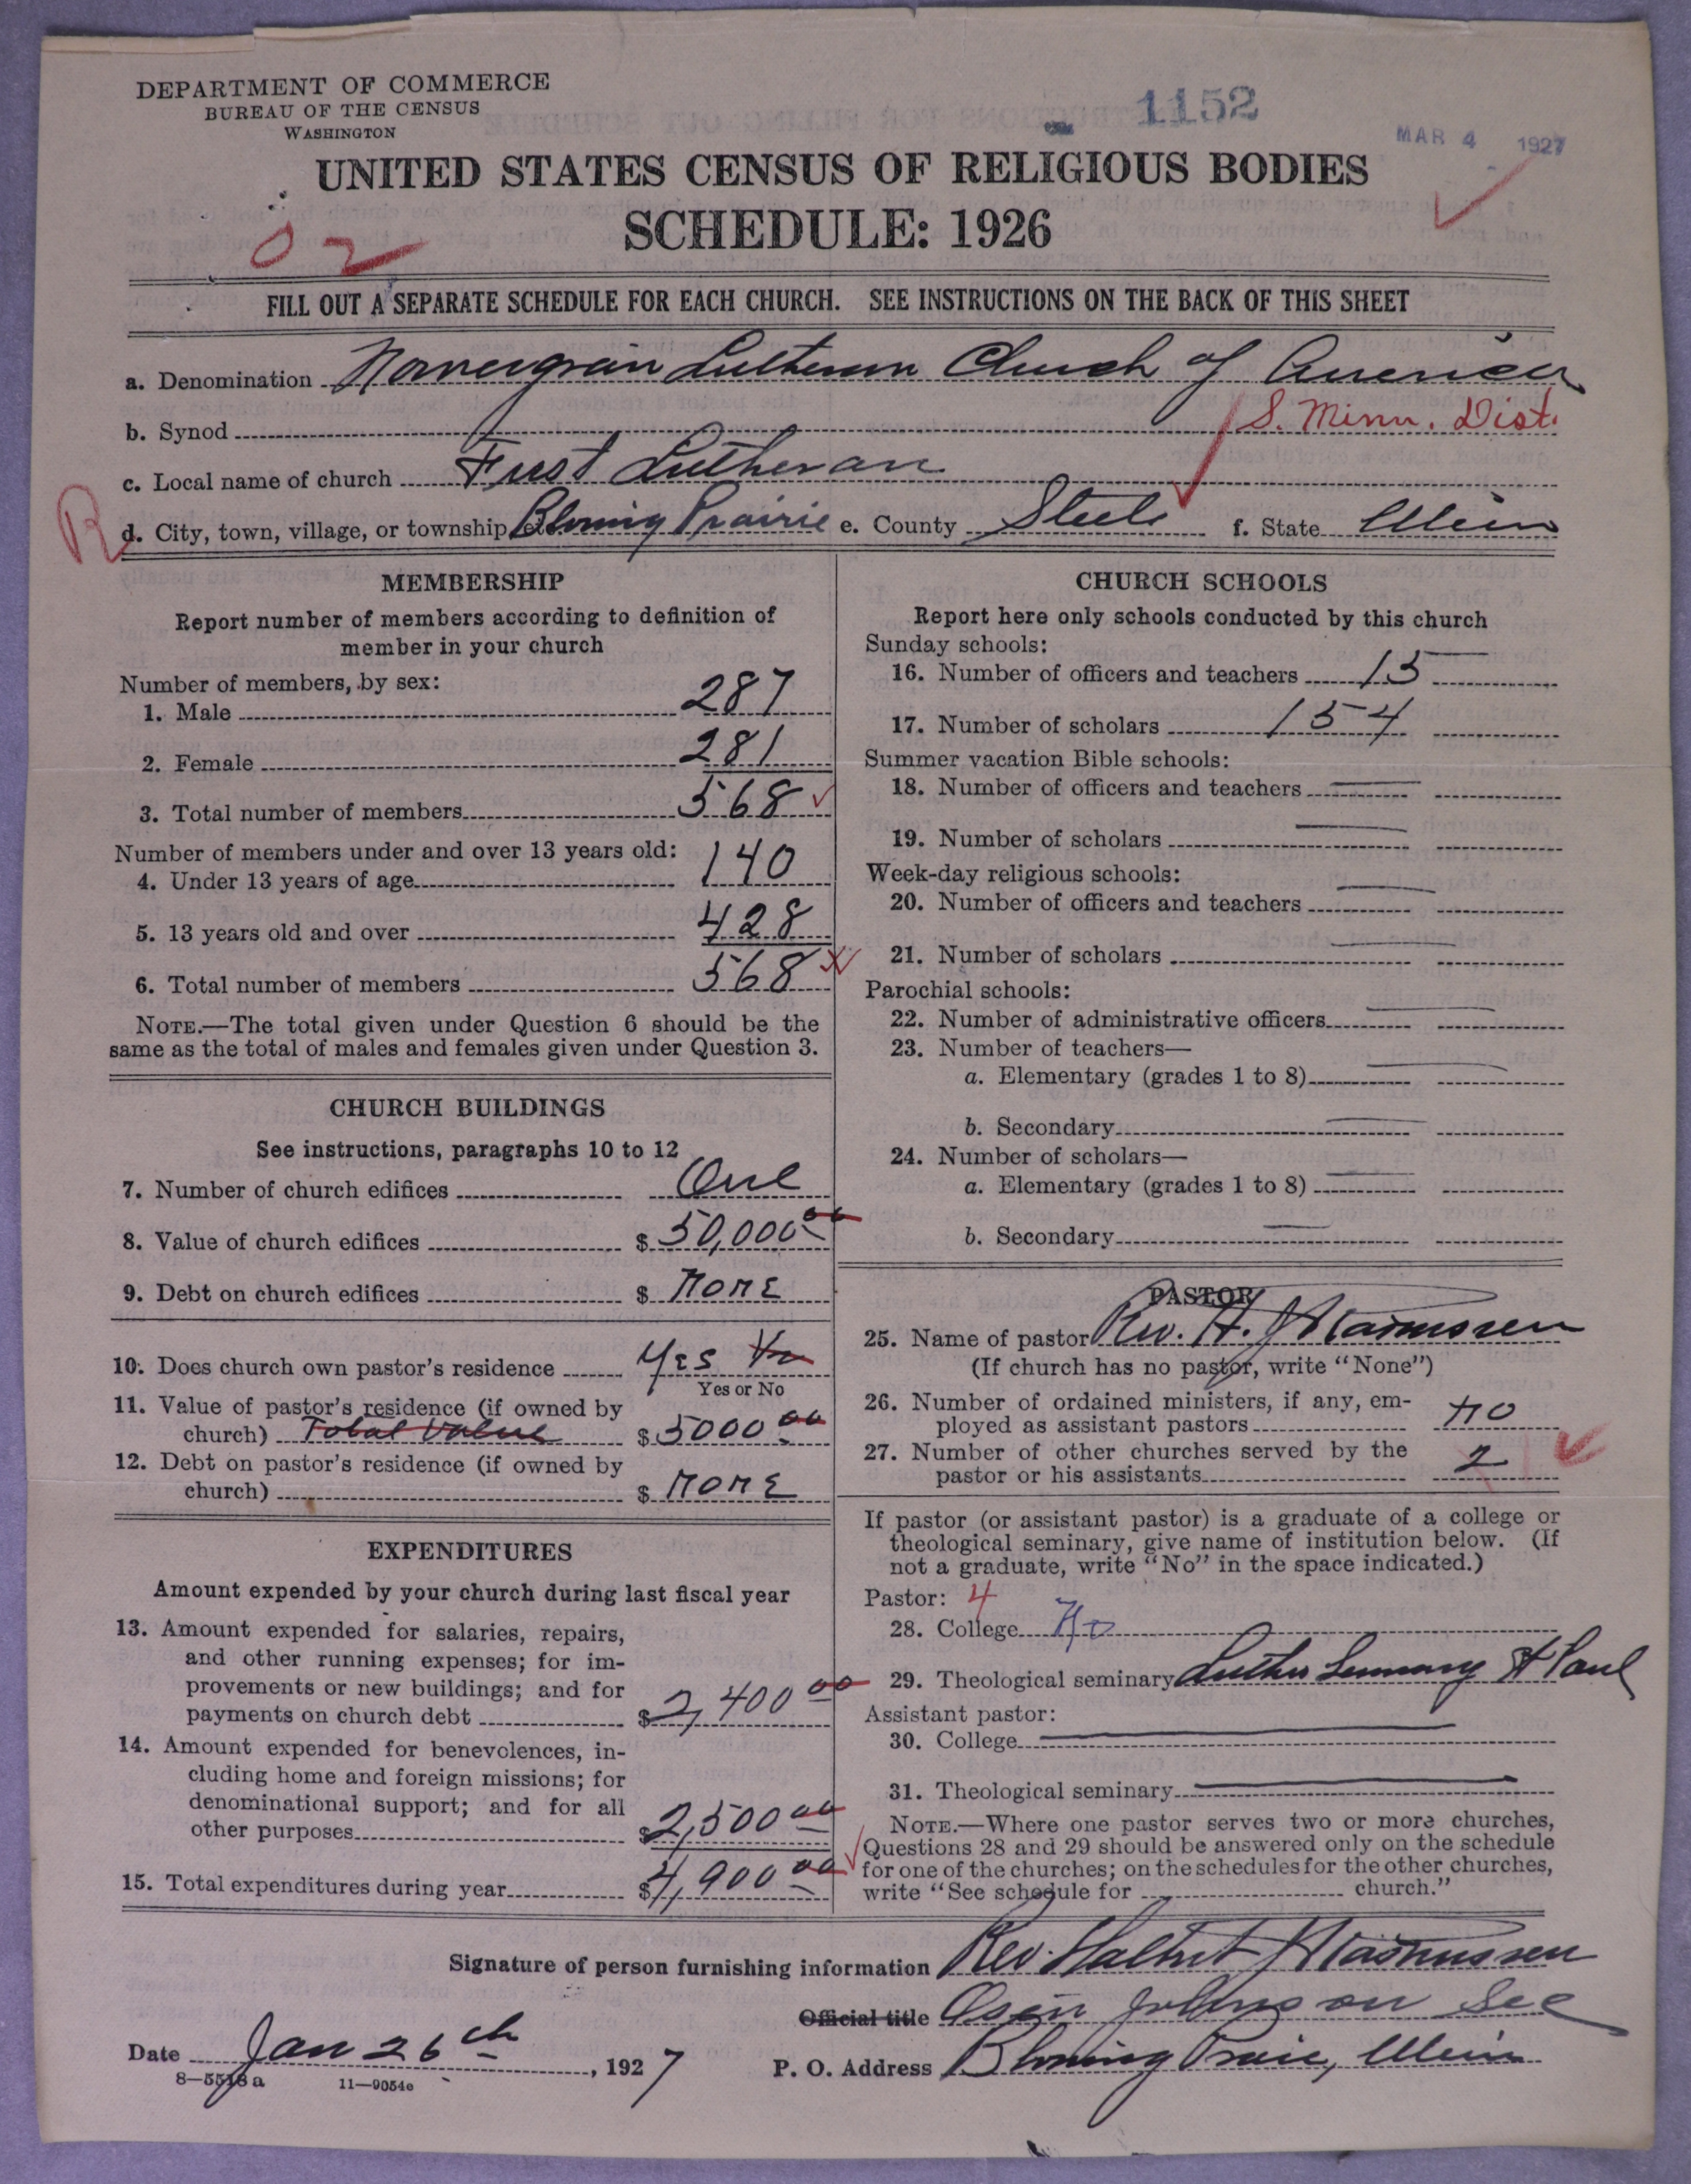 DEPARTMENT OF COMMERCE
BUREAU OF THE CENSUS
WASHINGTON
1152
MAR 4 1927
UNITED STATES CENSUS OF RELIGIOUS BODIES
SCHEDULE: 1926
02
FILL OUT A SEPARATE SCHEDULE FOR EACH CHURCH. SEE INSTRUCTIONS ON THE BACK OF THIS SHEET
a. Denomination Norwegian Lutheran Church of America
b. Synod S. Minn. Dist.
c. Local name of church First Lutheran
R
d. City, town, village, or township, etc. Blooming Prairie e. County Steele f. State Minn
MEMBERSHIP
Report number of members according to definition of
member in your church
Number of members, by sex:
1. Male 287
2. Female 281
3. Total number of members 568
Number of members under and over 13 years old:
4. Under 13 years of age 140
5. 13 years old and over 428
6. Total number of members 568
NOTE.—The total given under Question 6 should be the
same as the total of males and females given under Question 3.
CHURCH BUILDINGS
See instructions, paragraphs 10 to 12
7. Number of church edifices One
8. Value of church edifices $ 50,000 00
9. Debt on church edifices $ NONE
10. Does church own pastor's residence Yes
Yes or No
11. Value of pastor's residence (if owned by
church) Total Value $ 5000 00
12. Debt on pastor's residence (if owned by
church) $ NONE
EXPENDITURES
Amount expended by your church during last fiscal year
13. Amount expended for salaries, repairs,
and other running expenses; for im-
provements or new buildings; and for
payments on church debt $ 2,400 00
14. Amount expended for benevolences, in-
cluding home and foreign missions; for
denominational support; and for all
other purposes $ 2,500 00
15. Total expenditures during year $ 4,900 00
CHURCH SCHOOLS
Report here only schools conducted by this church
Sunday schools:
16. Number of officers and teachers 15
17. Number of scholars 154
Summer vacation Bible schools:
18. Number of officers and teachers
19. Number of scholars
Week-day religious schools:
20. Number of officers and teachers
21. Number of scholars
Parochial schools:
22. Number of administrative officers
23. Number of teachers—
a. Elementary (grades 1 to 8)
b. Secondary
24. Number of scholars—
a. Elementary (grades 1 to 8)
b. Secondary
PASTOR
25. Name of pastor Rev. H. Rasmussen
(If church has no pastor, write "None")
26. Number of ordained ministers, if any, em-
ployed as assistant pastors no
27. Number of other churches served by the
pastor or his assistants 2
If pastor (or assistant pastor) is a graduate of a college or
theological seminary, give name of institution below. (If
not a graduate, write "No" in the space indicated.)
Pastor: 4
28. College No
29. Theological seminary Luther Seminary St Paul
Assistant pastor:
30. College
31. Theological seminary
NOTE.—Where one pastor serves two or more churches,
Questions 28 and 29 should be answered only on the schedule
for one of the churches; on the schedules for the other churches,
write "See schedule for church."
Signature of person furnishing information Rev. Halbert Rasmussen
Official title Johnson Sec
Date Jan 26th, 1927 P. O. Address Blooming Prairie, Minn
8—5518a 11—9054e